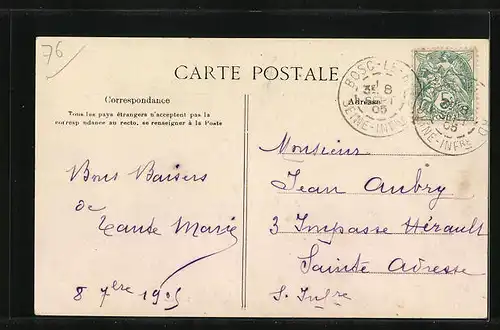 76
CARTE POSTALE
BOSC-LE-
3E 8
SEPT
05
SEINE-INFRE
Correspondance
Adresse
Tous les pays étrangers n'acceptent pas la
correspondance au recto, se renseigner à la Poste
Monsieur
Jean Aubry
3 Impasse Hérault
Sainte Adresse
S. Infre
Bons Baisers
de
Tante Marie
8 7bre 1905